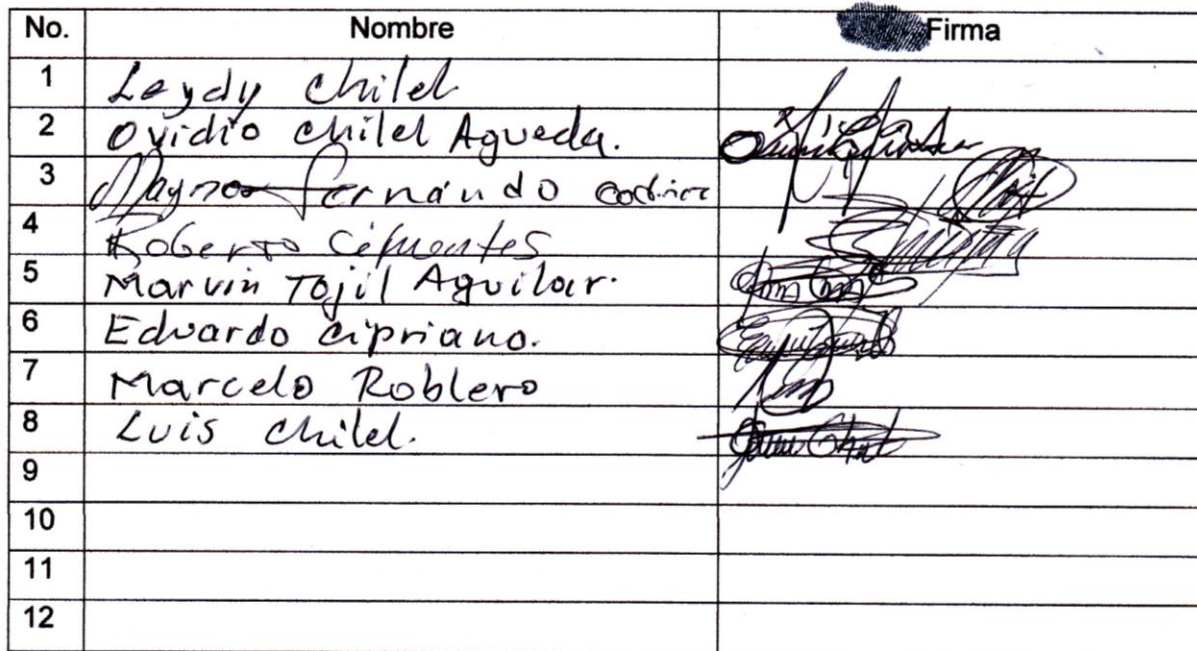 No. Nombre Firma
1 Leydy Chilel
2 Ovidio Chilel Agueda.
3 Fernando
4 Roberto Cifuentes
5 Marvin Tojil Aguilar.
6 Eduardo Cipriano.
7 Marcelo Roblero
8 Luis Chilel.
9
10
11
12